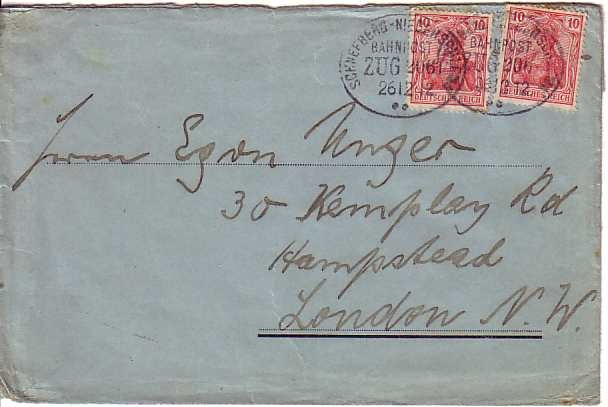 10 10 10 10
SCHNEEBERG-NIEDERSCHLEMA
BAHNPOST BAHNPOST
ZUG 2061 ZUG 206
2612 12
DEUTSCHES REICH DEUTSCHES REICH
Herrn Egon Unger
30 Kemplay Rd
Hampstead
London N.W.